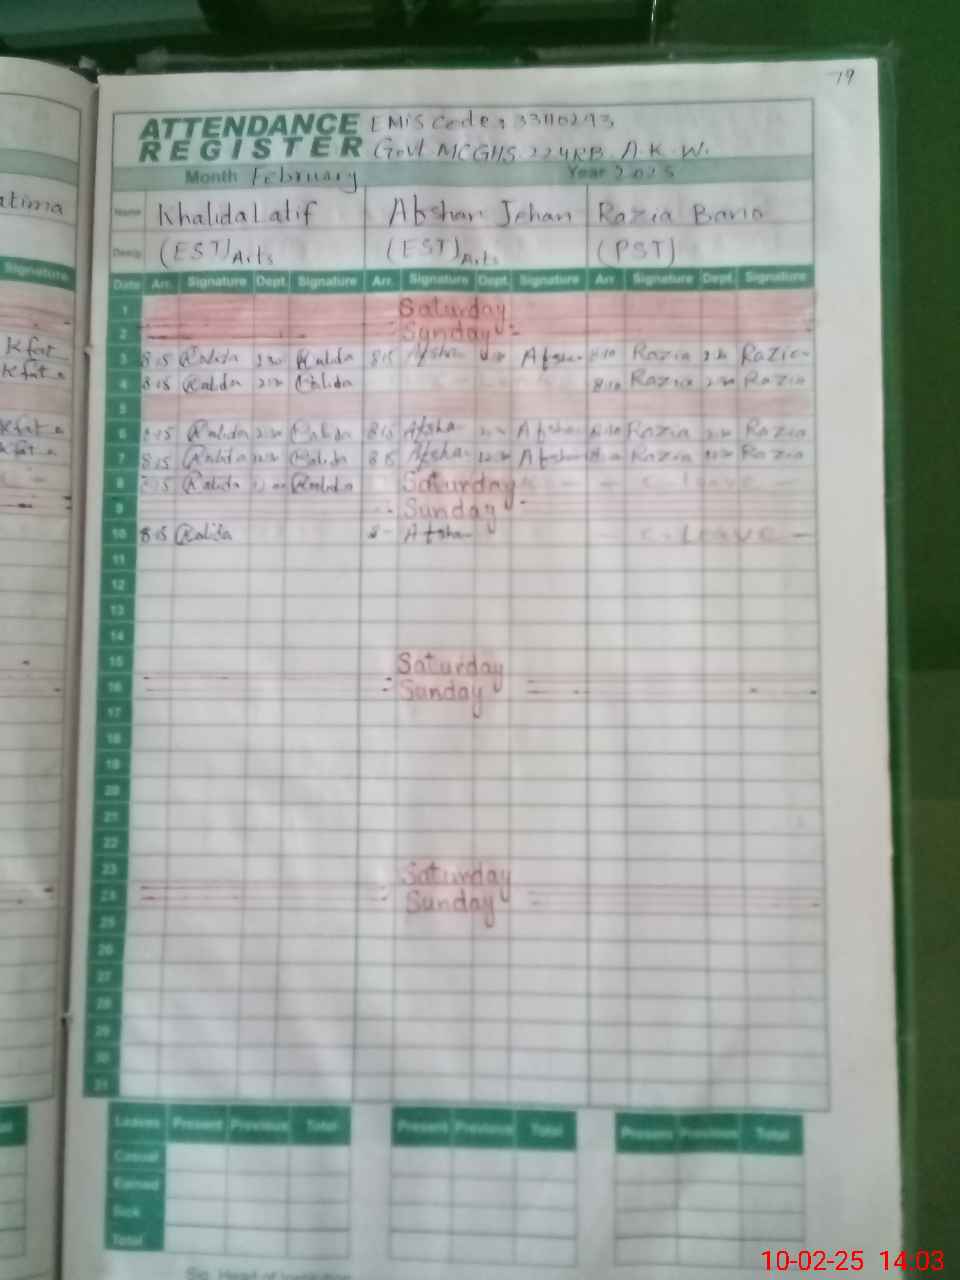 79
ATTENDANCE REGISTER
EMIS Code: 33110293
Govt MCGHS 224RB A.K.W.
Month February Year 2025
atima
Name Khalida Latif Afshan Jehan Razia Bano
Desig (EST) Arts (EST) Arts (PST)
Signature
Date Arr. Signature Dept. Signature Arr. Signature Dept. Signature Arr. Signature Dept. Signature
1 Saturday
2 Sunday
3 8:15 Kalida Kalida 8:15 Afshan Afshan Razia Razia
4 8:15 Kalida Kalida 8:10 Razia Razia
5
6 8:15 Kalida Kalida Afshan Afshan Razia Razia
7 8:15 Kalida Kalida 8:15 Afshan Afshan Razia Razia
8 8:15 Kalida Kalida Saturday C. leave
9 Sunday
10 8:15 Kalida Afshan C. Leave
11
12
13
14
15 Saturday
16 Sunday
17
18
19
20
21
22
23 Saturday
24 Sunday
25
26
27
28
29
30
31
Leaves Present Previous Total Present Previous Total Present Previous Total
Casual
Earned
Sick
Total
10-02-25 14:03